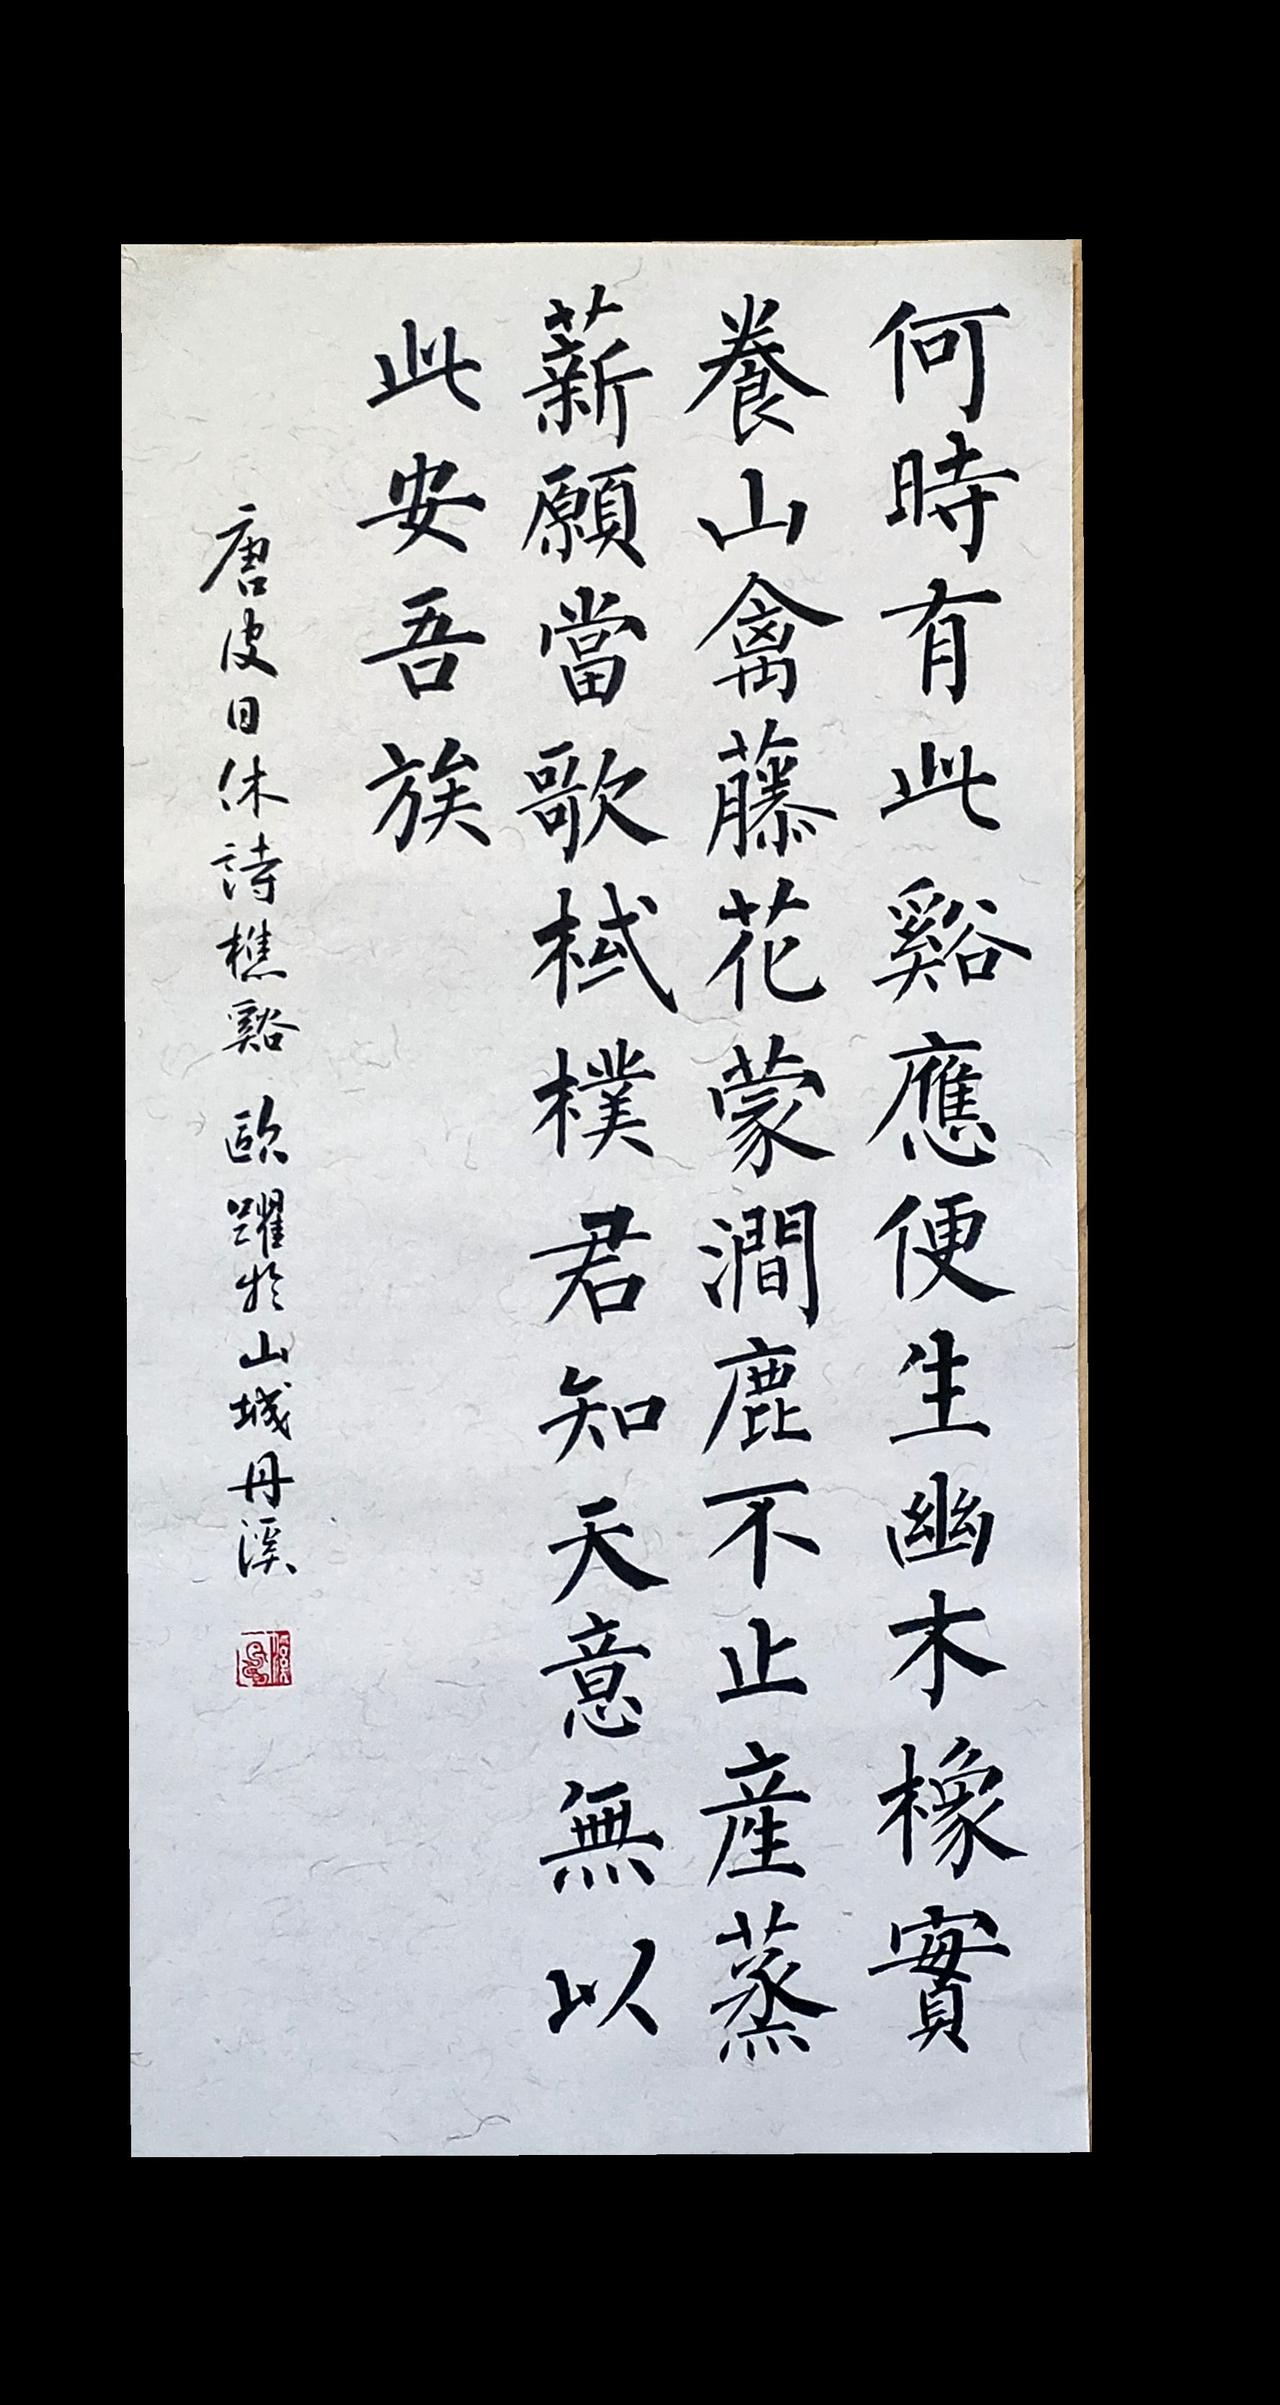 何時有此谿應便生幽木橡實
養山禽藤花蒙澗鹿不止產蒸
薪願當歌棫樸君知天意無以
此安吾族
唐皮日休詩樵谿 歐躍於山城丹溪